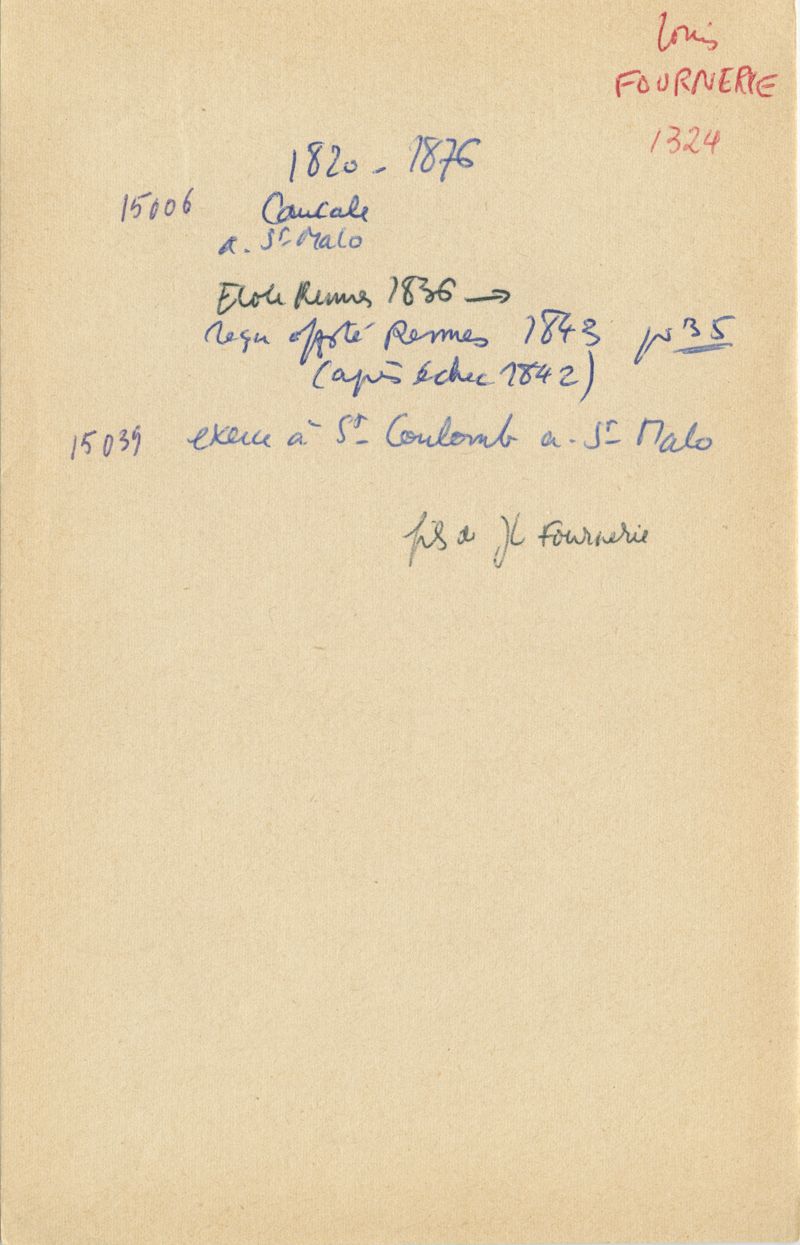 Louis
FOURNERIE
1324
1820 - 1876
15006 Cancale
a. St Malo
Ecole Rennes 1836 →
reçu offté Rennes 1843 pr 35
(après échec 1842)
15039 exerce à St Coulomb a. St Malo
fils de JL Fournerie